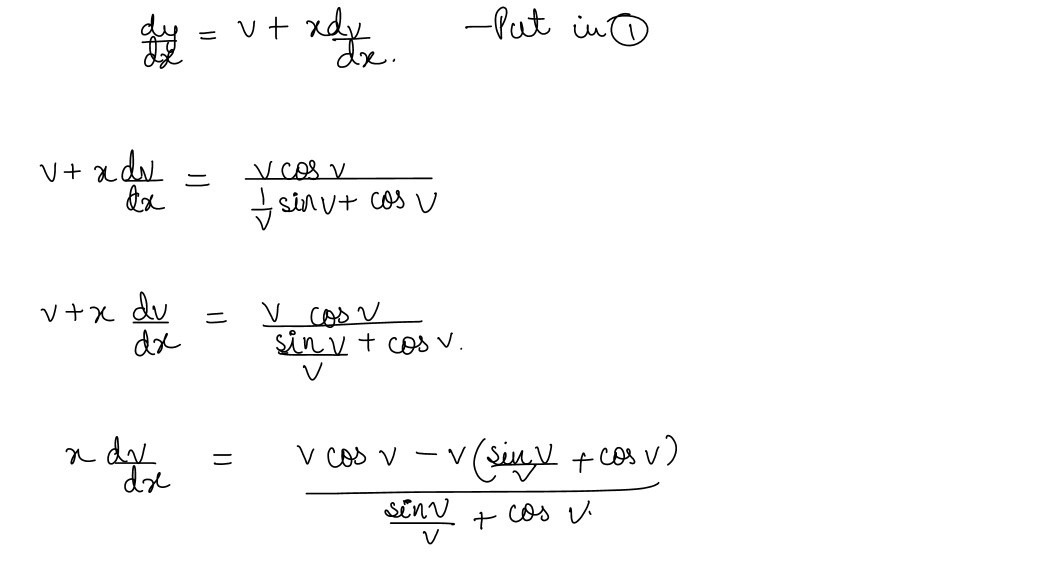 dy/dx = v + x dv/dx. – Put in ①
v + x dv/dx = (v cos v)/(1/v sin v + cos v)
v + x dv/dx = (v cos v)/(sin v/v + cos v).
x dv/dx = (v cos v – v(sin v/v + cos v))/(sin v/v + cos v.)